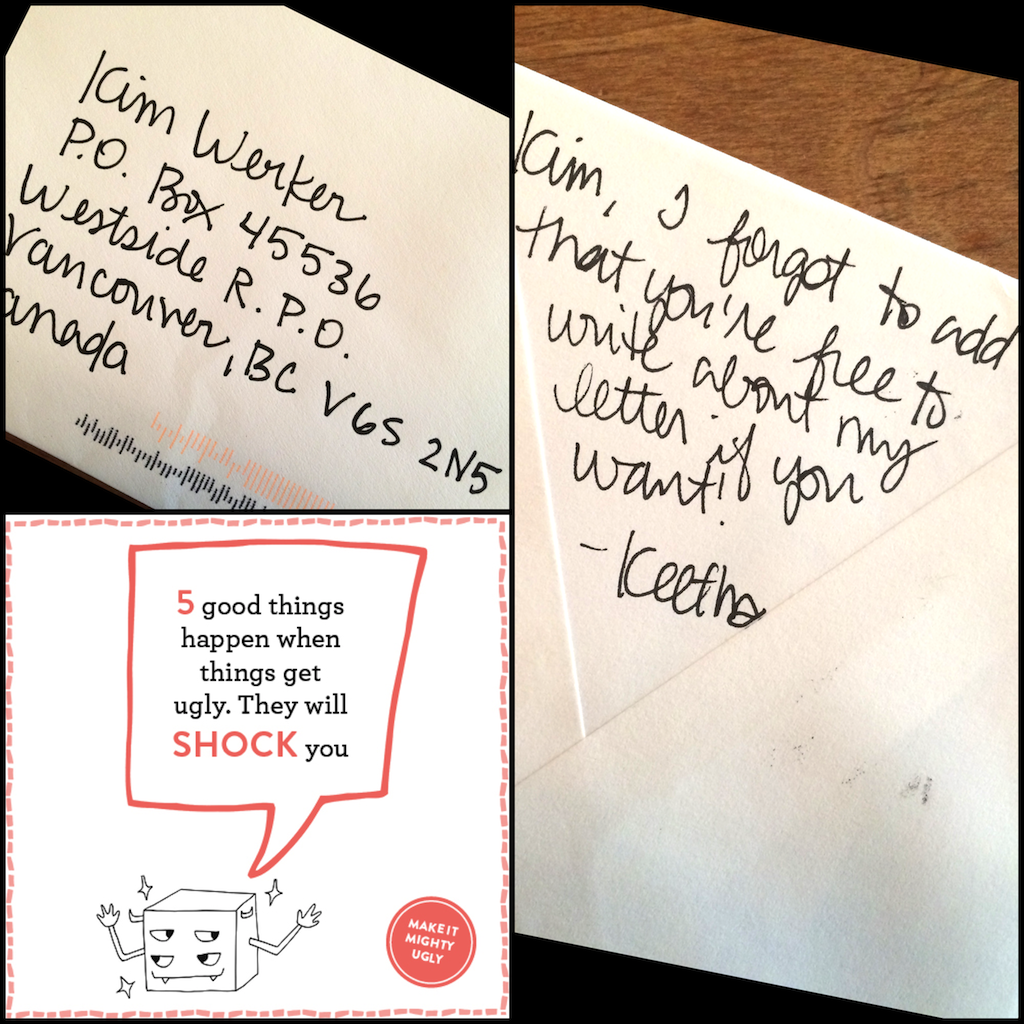 Kim Werker
P.O. Box 45536
Westside R.P.O.
Vancouver, BC V6S 2N5
anada
Kim, I forgot to add
that you're free to
write about my
letter if you
want!
- Keetha
5 good things
happen when
things get
ugly. They will
SHOCK you
MAKE IT
MIGHTY
UGLY